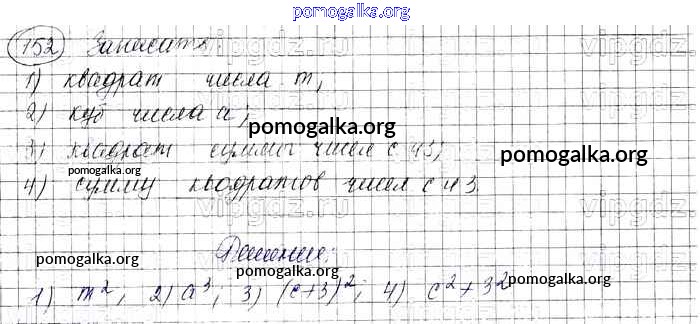 pomogalka.org
152 Запишите
1) квадрат числа m,
2) куб числа a;
pomogalka.org
3) квадрат суммы чисел c и 3;
pomogalka.org
pomogalka.org
4) сумму квадратов чисел c и 3.
vipgdz.ru
Решение:
pomogalka.org
pomogalka.org
pomogalka.org
1) m², 2) a³; 3) (c+3)²; 4) c²+3²